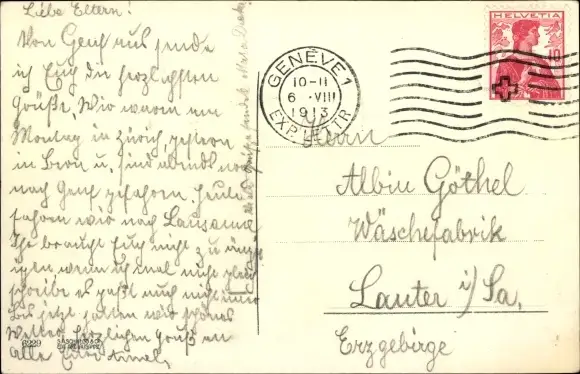 Liebe Eltern!
Von Genf aus sende
ich Euch die herzlichsten
Grüße. Wir waren am
Montag in Zürich, gestern
in Bern u. sind abends noch
nach Genf gefahren. Heute
fahren wir nach Lausanne
Ihr braucht Euch nicht zu ängst
igen wenn ich mal nicht gleich
schreibe es paßt auch nicht immer
Bis jetzt hatten wir schönes
Wetter. Herzlichen Gruß an
alle Eure
GENÈVE 1
10-11
6 . VIII
1913
EXP. LETTR.
HELVETIA
10
Herrn
Albin Göthel
Wäschefabrik
Lauter i/Sa,
Erzgebirge
6929